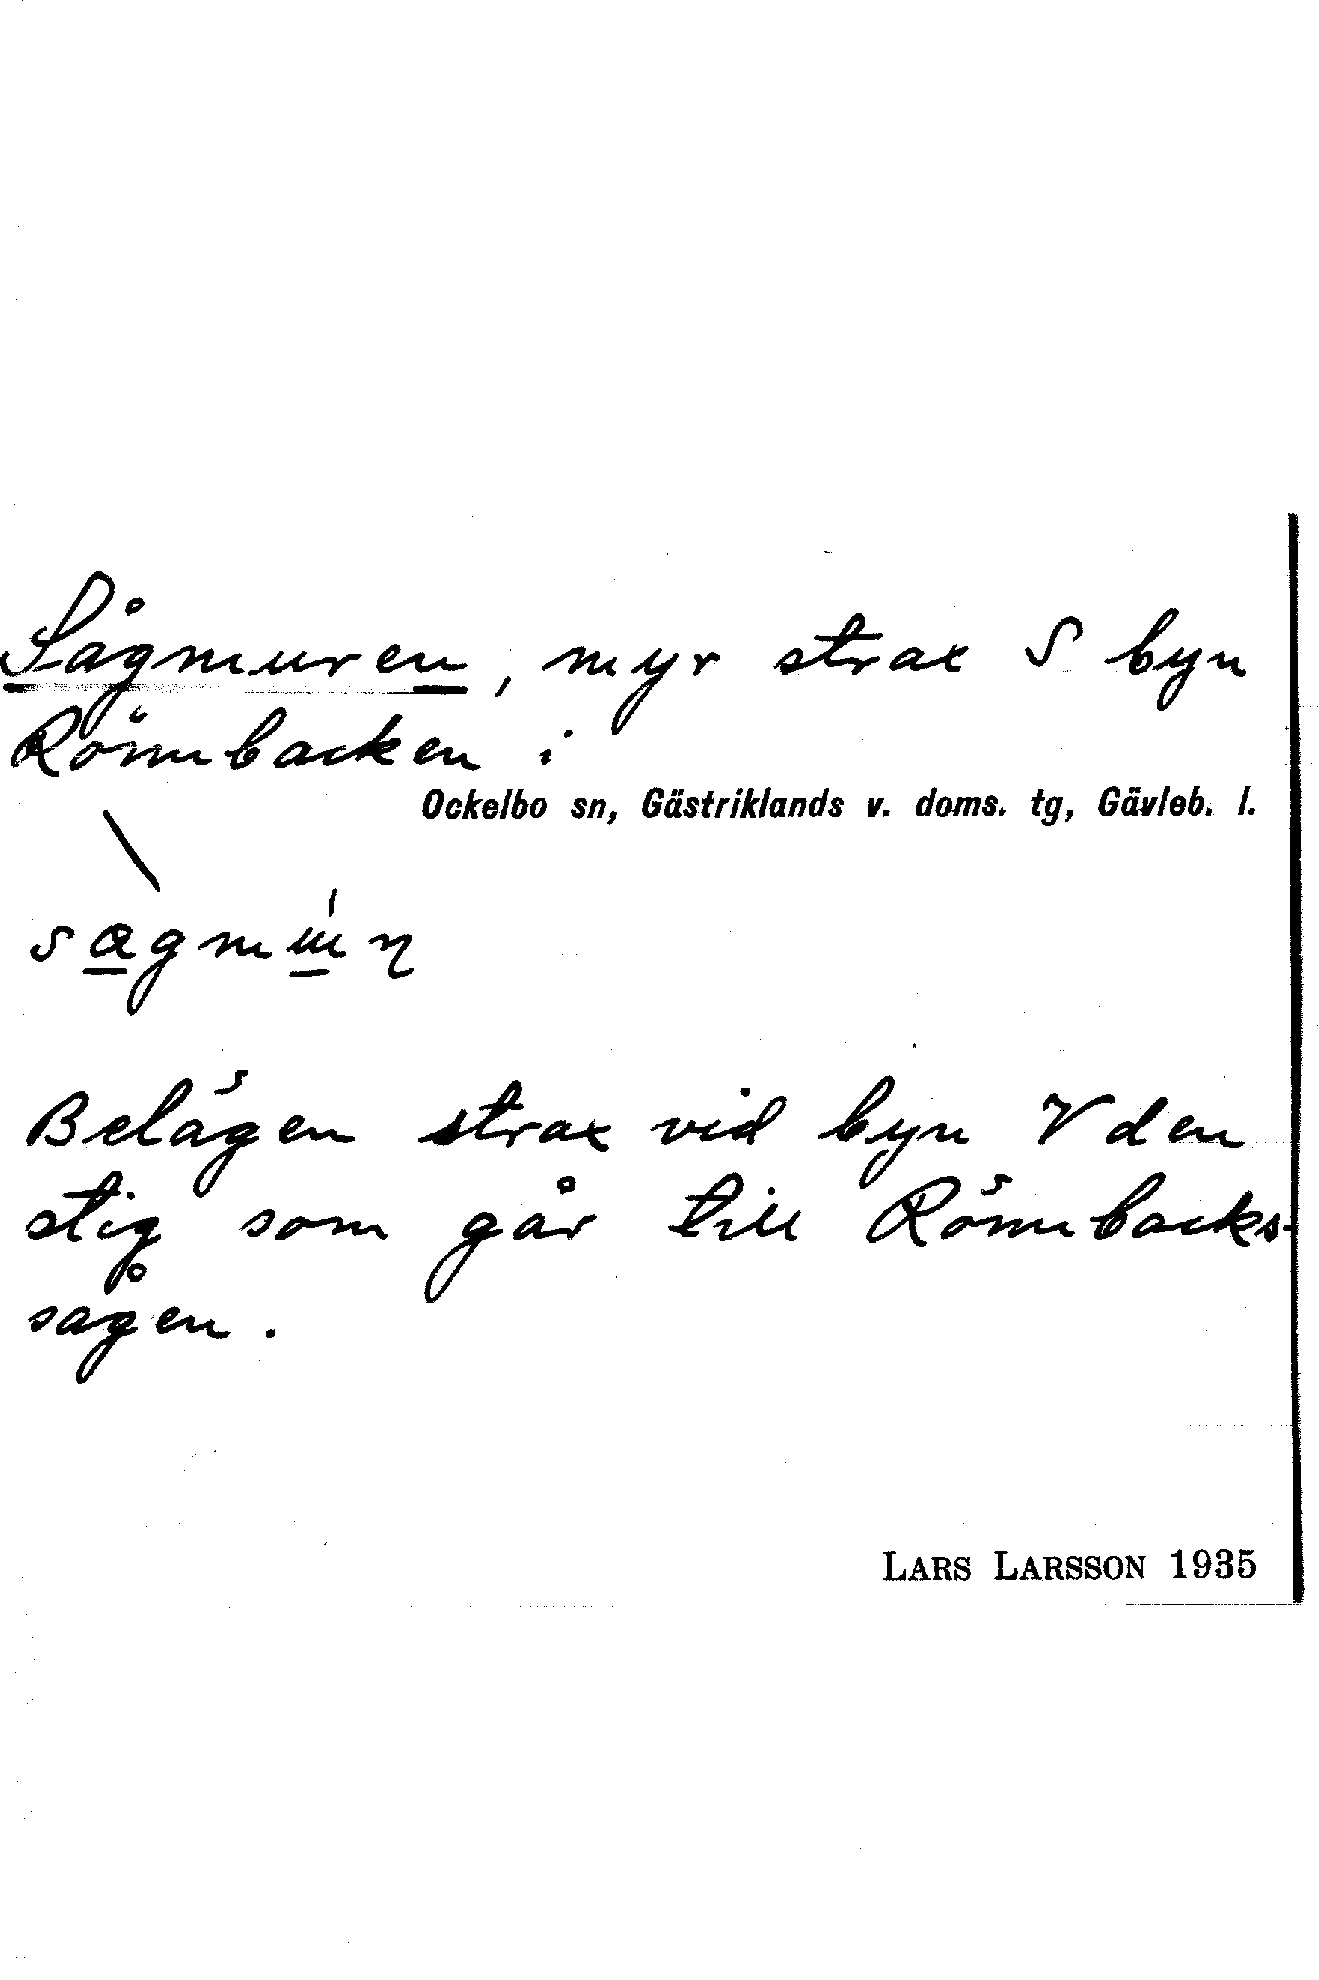 Sågmuren, myr strax S byn
Rönnbacken i
Ockelbo sn, Gästriklands v. doms. tg, Gävleb. l.
Belägen strax vid byn V den
stig som går till Rönnbacks-
sågen.
LARS LARSSON 1935